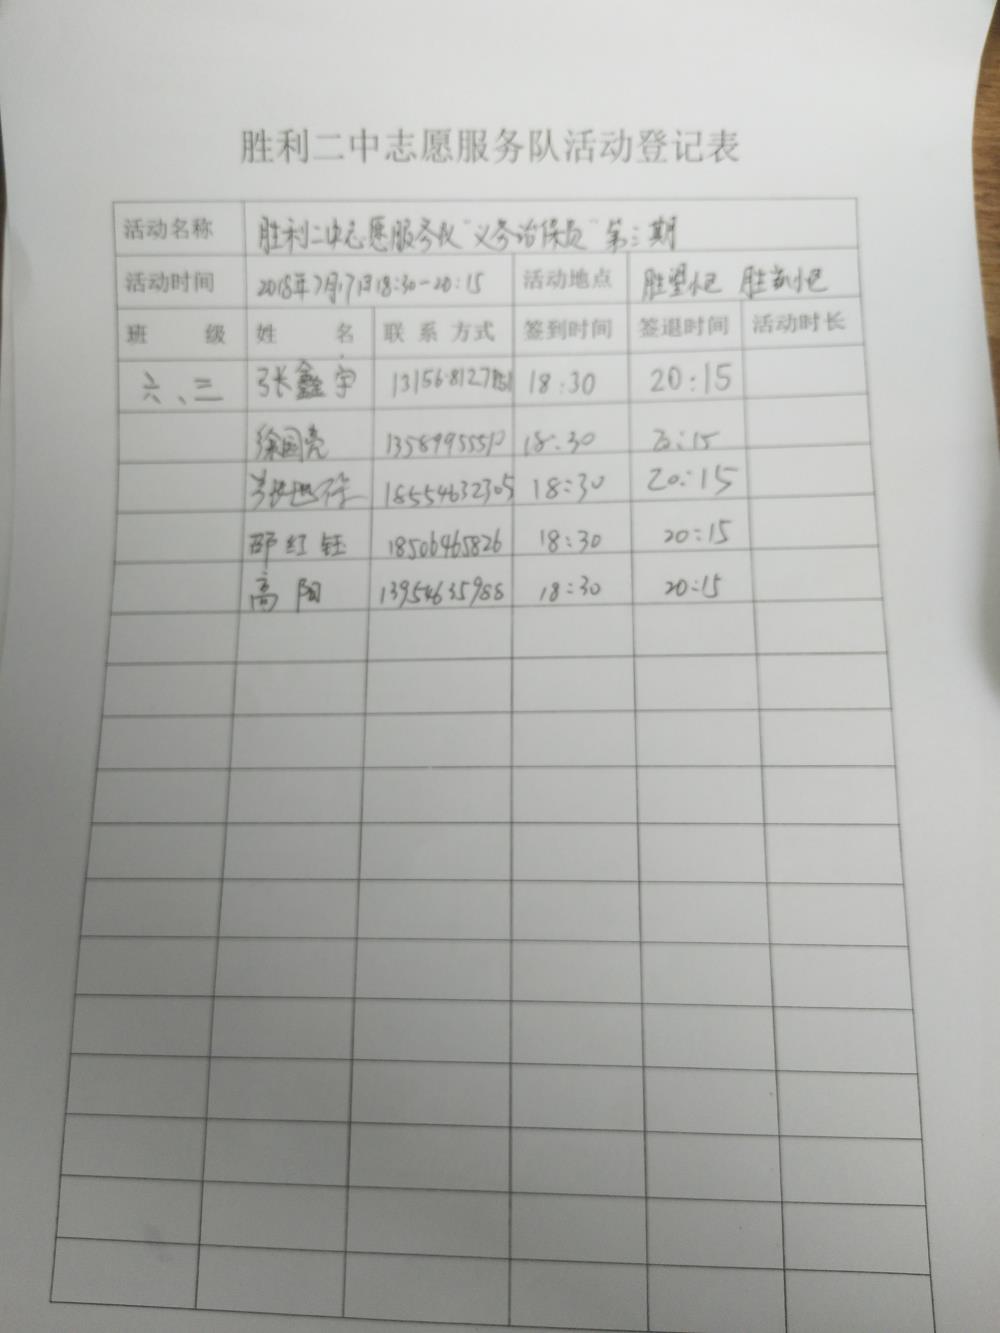 胜利二中志愿服务队活动登记表
活动名称 胜利二中志愿服务队"义务治保员"第三期
活动时间 2018年7月17日18:30-20:15 活动地点 胜望小区 胜 小区
班级 姓名 联系方式 签到时间 签退时间 活动时长
六、三 张鑫宇 18:30 20:15
徐国亮 18:30 20:15
18554632305 18:30 20:15
邵红钰 18506465826 18:30 20:15
高阳 13954635988 18:30 20:15